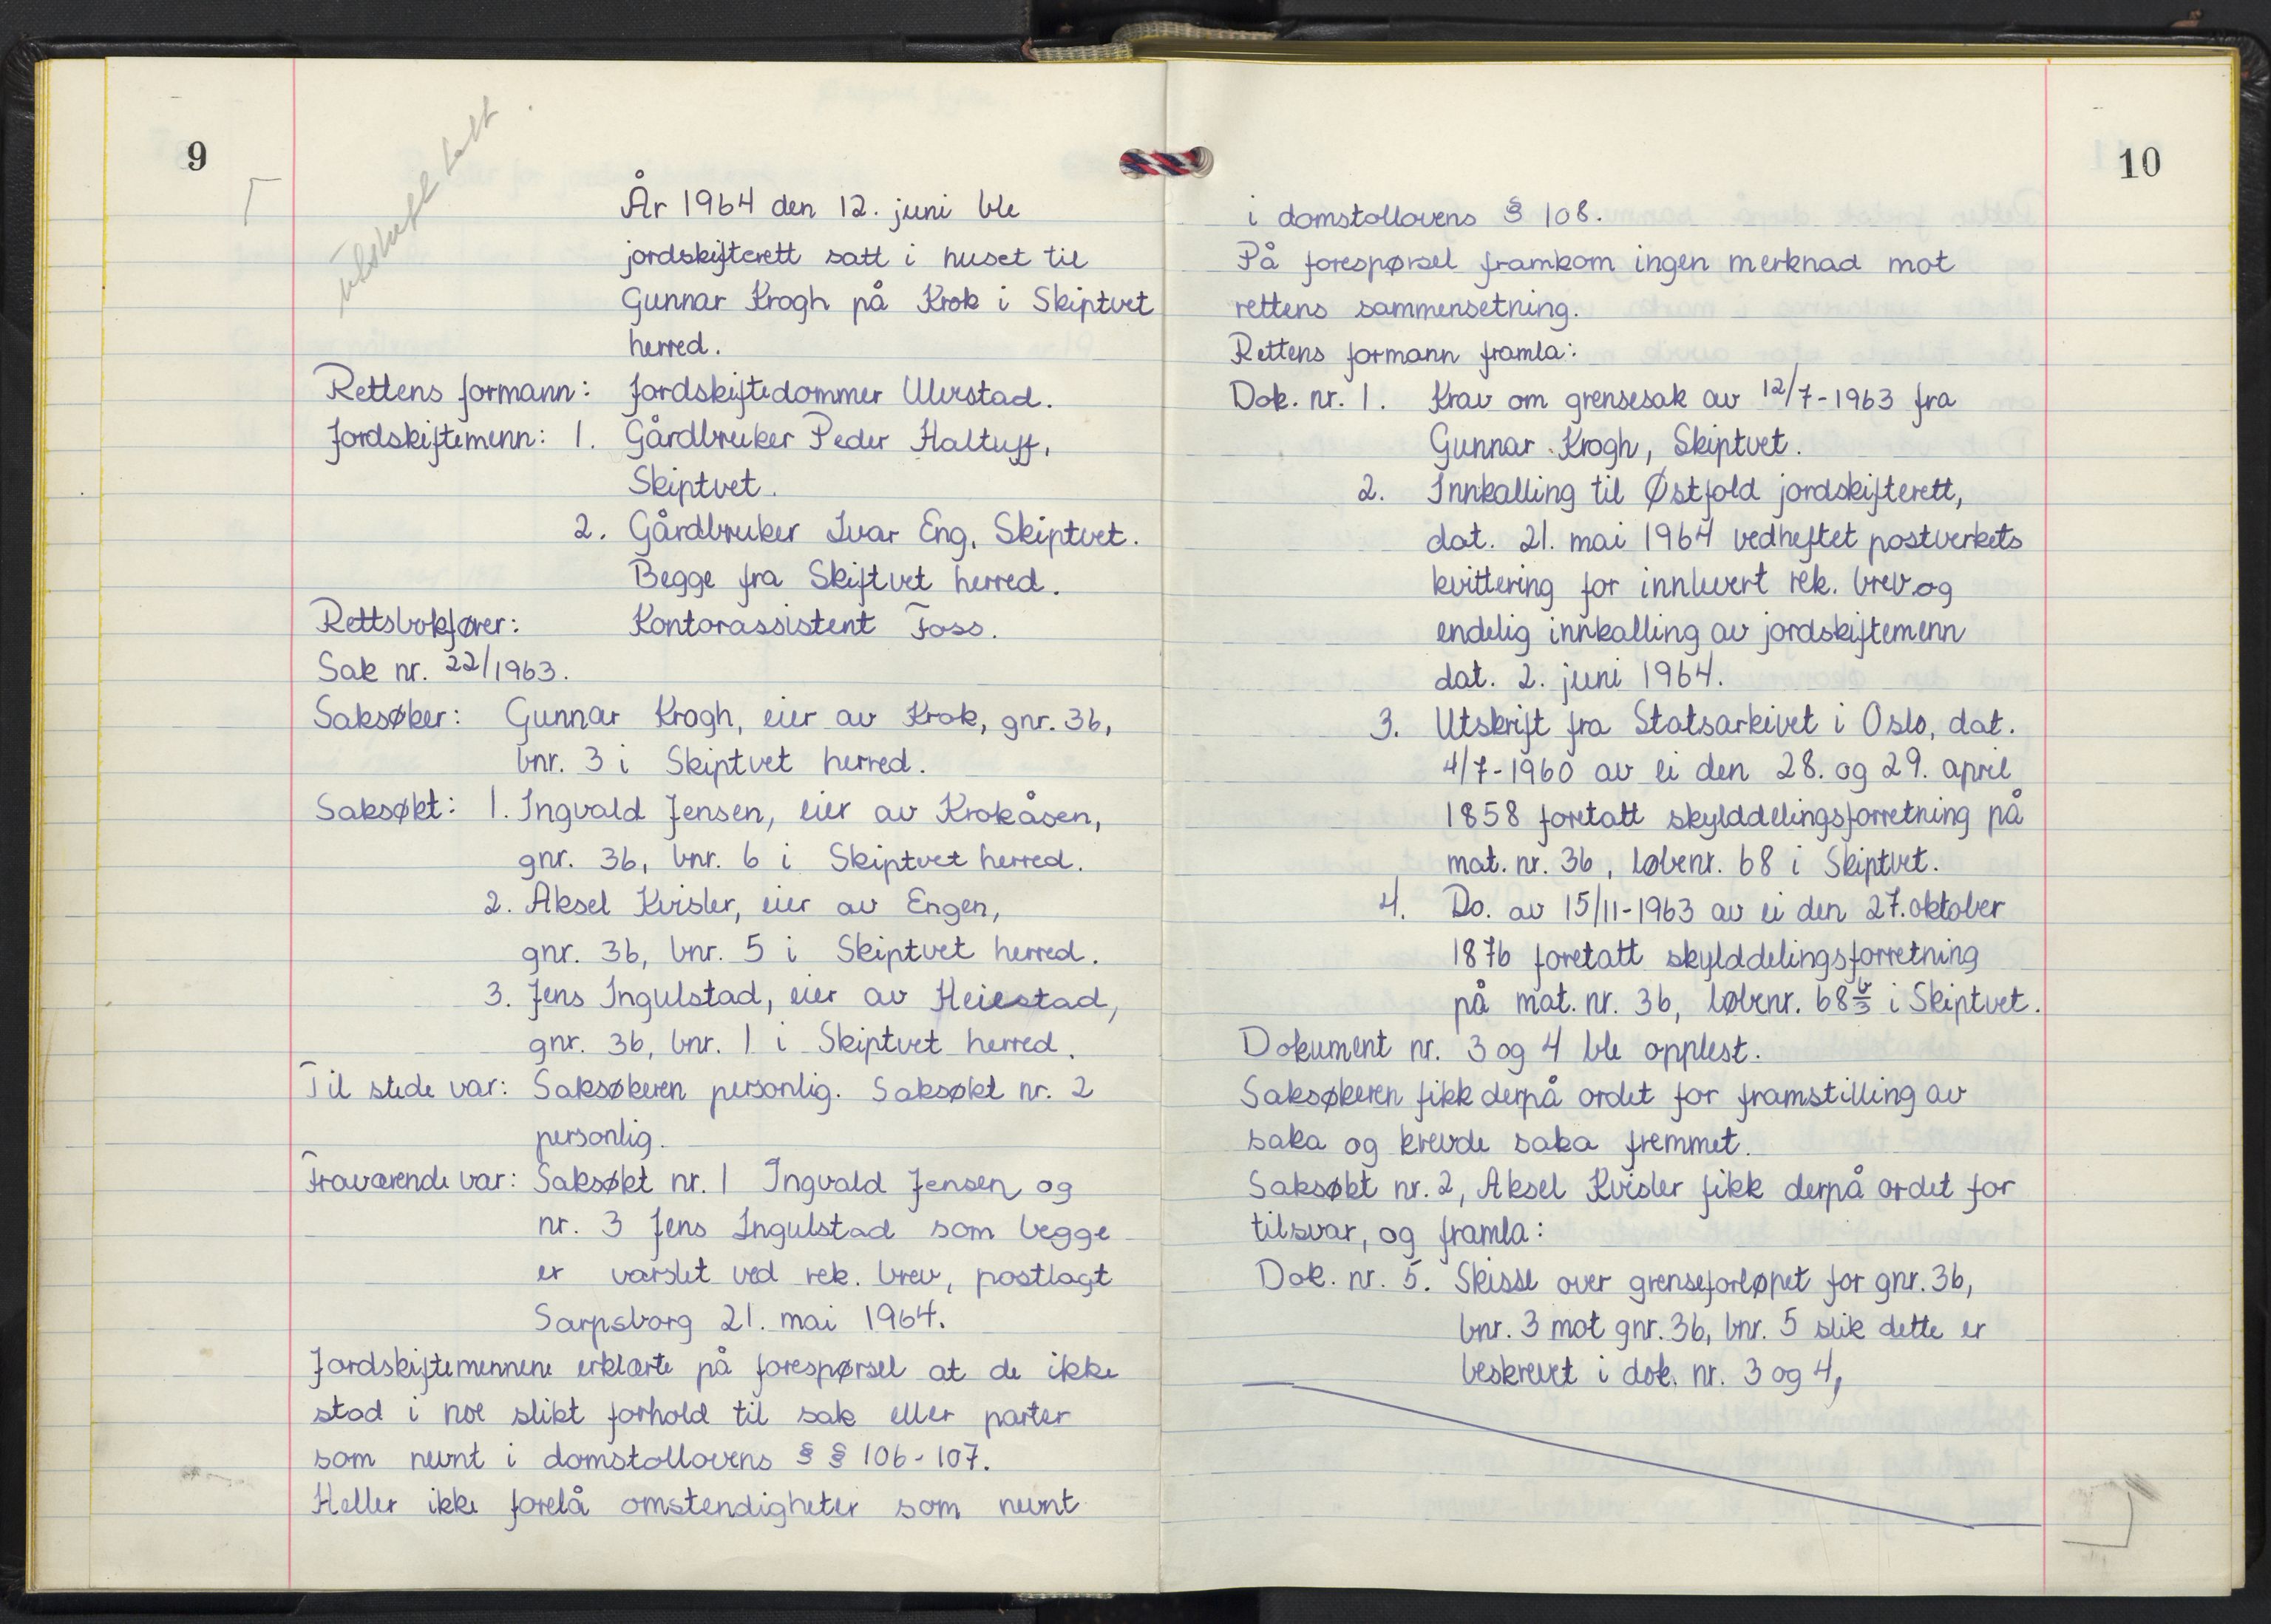 9
utskrift tatt
År 1964 den 12. juni ble
jordskifterett satt i huset til
Gunnar Krogh på Krok i Skiptvet
herred.
Rettens formann: Jordskiftedommer Ulvestad.
Jordskiftemenn: 1. Gårdbruker Peder Haltuff,
Skiptvet.
2. Gårdbruker Ivar Eng, Skiptvet.
Begge fra Skiftvet herred.
Rettsbokfører: Kontorassistent Foss.
Sak nr. 22/1963.
Saksøker: Gunnar Krogh, eier av Krok, gnr. 36,
bnr. 3 i Skiptvet herred.
Saksøkt: 1. Ingvald Jensen, eier av Krokåsen,
gnr. 36, bnr. 6 i Skiptvet herred.
2. Aksel Kvisler, eier av Engen,
gnr. 36, bnr. 5 i Skiptvet herred.
3. Jens Ingulstad, eier av Heiestad,
gnr. 36, bnr. 1 i Skiptvet herred.
Til stede var: Saksøkeren personlig. Saksøkt nr. 2
personlig.
Fraværende var: Saksøkt nr. 1 Ingvald Jensen og
nr. 3 Jens Ingulstad som begge
er varslet ved rek. brev, postlagt
Sarpsborg 21. mai 1964.
Jordskiftemennene erklærte på forespørsel at de ikke
stod i noe slikt forhold til sak eller parter
som nevnt i domstollovens § § 106-107.
Heller ikke forelå omstendigheter som nevnt
10
i domstollovens § 108.
På forespørsel framkom ingen merknad mot
rettens sammensetning.
Rettens formann framla:
Dok. nr. 1. Krav om grensesak av 12/7-1963 fra
Gunnar Krogh, Skiptvet.
2. Innkalling til Østfold jordskifterett,
dat. 21. mai 1964 vedheftet postverkets
kvittering for innlevert rek. brev og
endelig innkalling av jordskiftemenn
dat. 2. juni 1964.
3. Utskrift fra Statsarkivet i Oslo, dat.
4/7-1960 av ei den 28. og 29. april
1858 foretatt skylddelingsforretning på
mat. nr. 36, løbenr. 68 i Skiptvet.
4. Do. av 15/11-1963 av ei den 27. oktober
1876 foretatt skylddelingsforretning
på mat. nr. 36, løbenr. 68 b/3 i Skiptvet.
Dokument nr. 3 og 4 ble opplest.
Saksøkeren fikk derpå ordet for framstilling av
saka og krevde saka fremmet.
Saksøkt nr. 2, Aksel Kvisler fikk derpå ordet for
tilsvar, og framla:
Dok. nr. 5. Skisse over grenseforløpet for gnr. 36,
bnr. 3 mot gnr. 36, bnr. 5 slik dette er
beskrevet i dok. nr. 3 og 4,